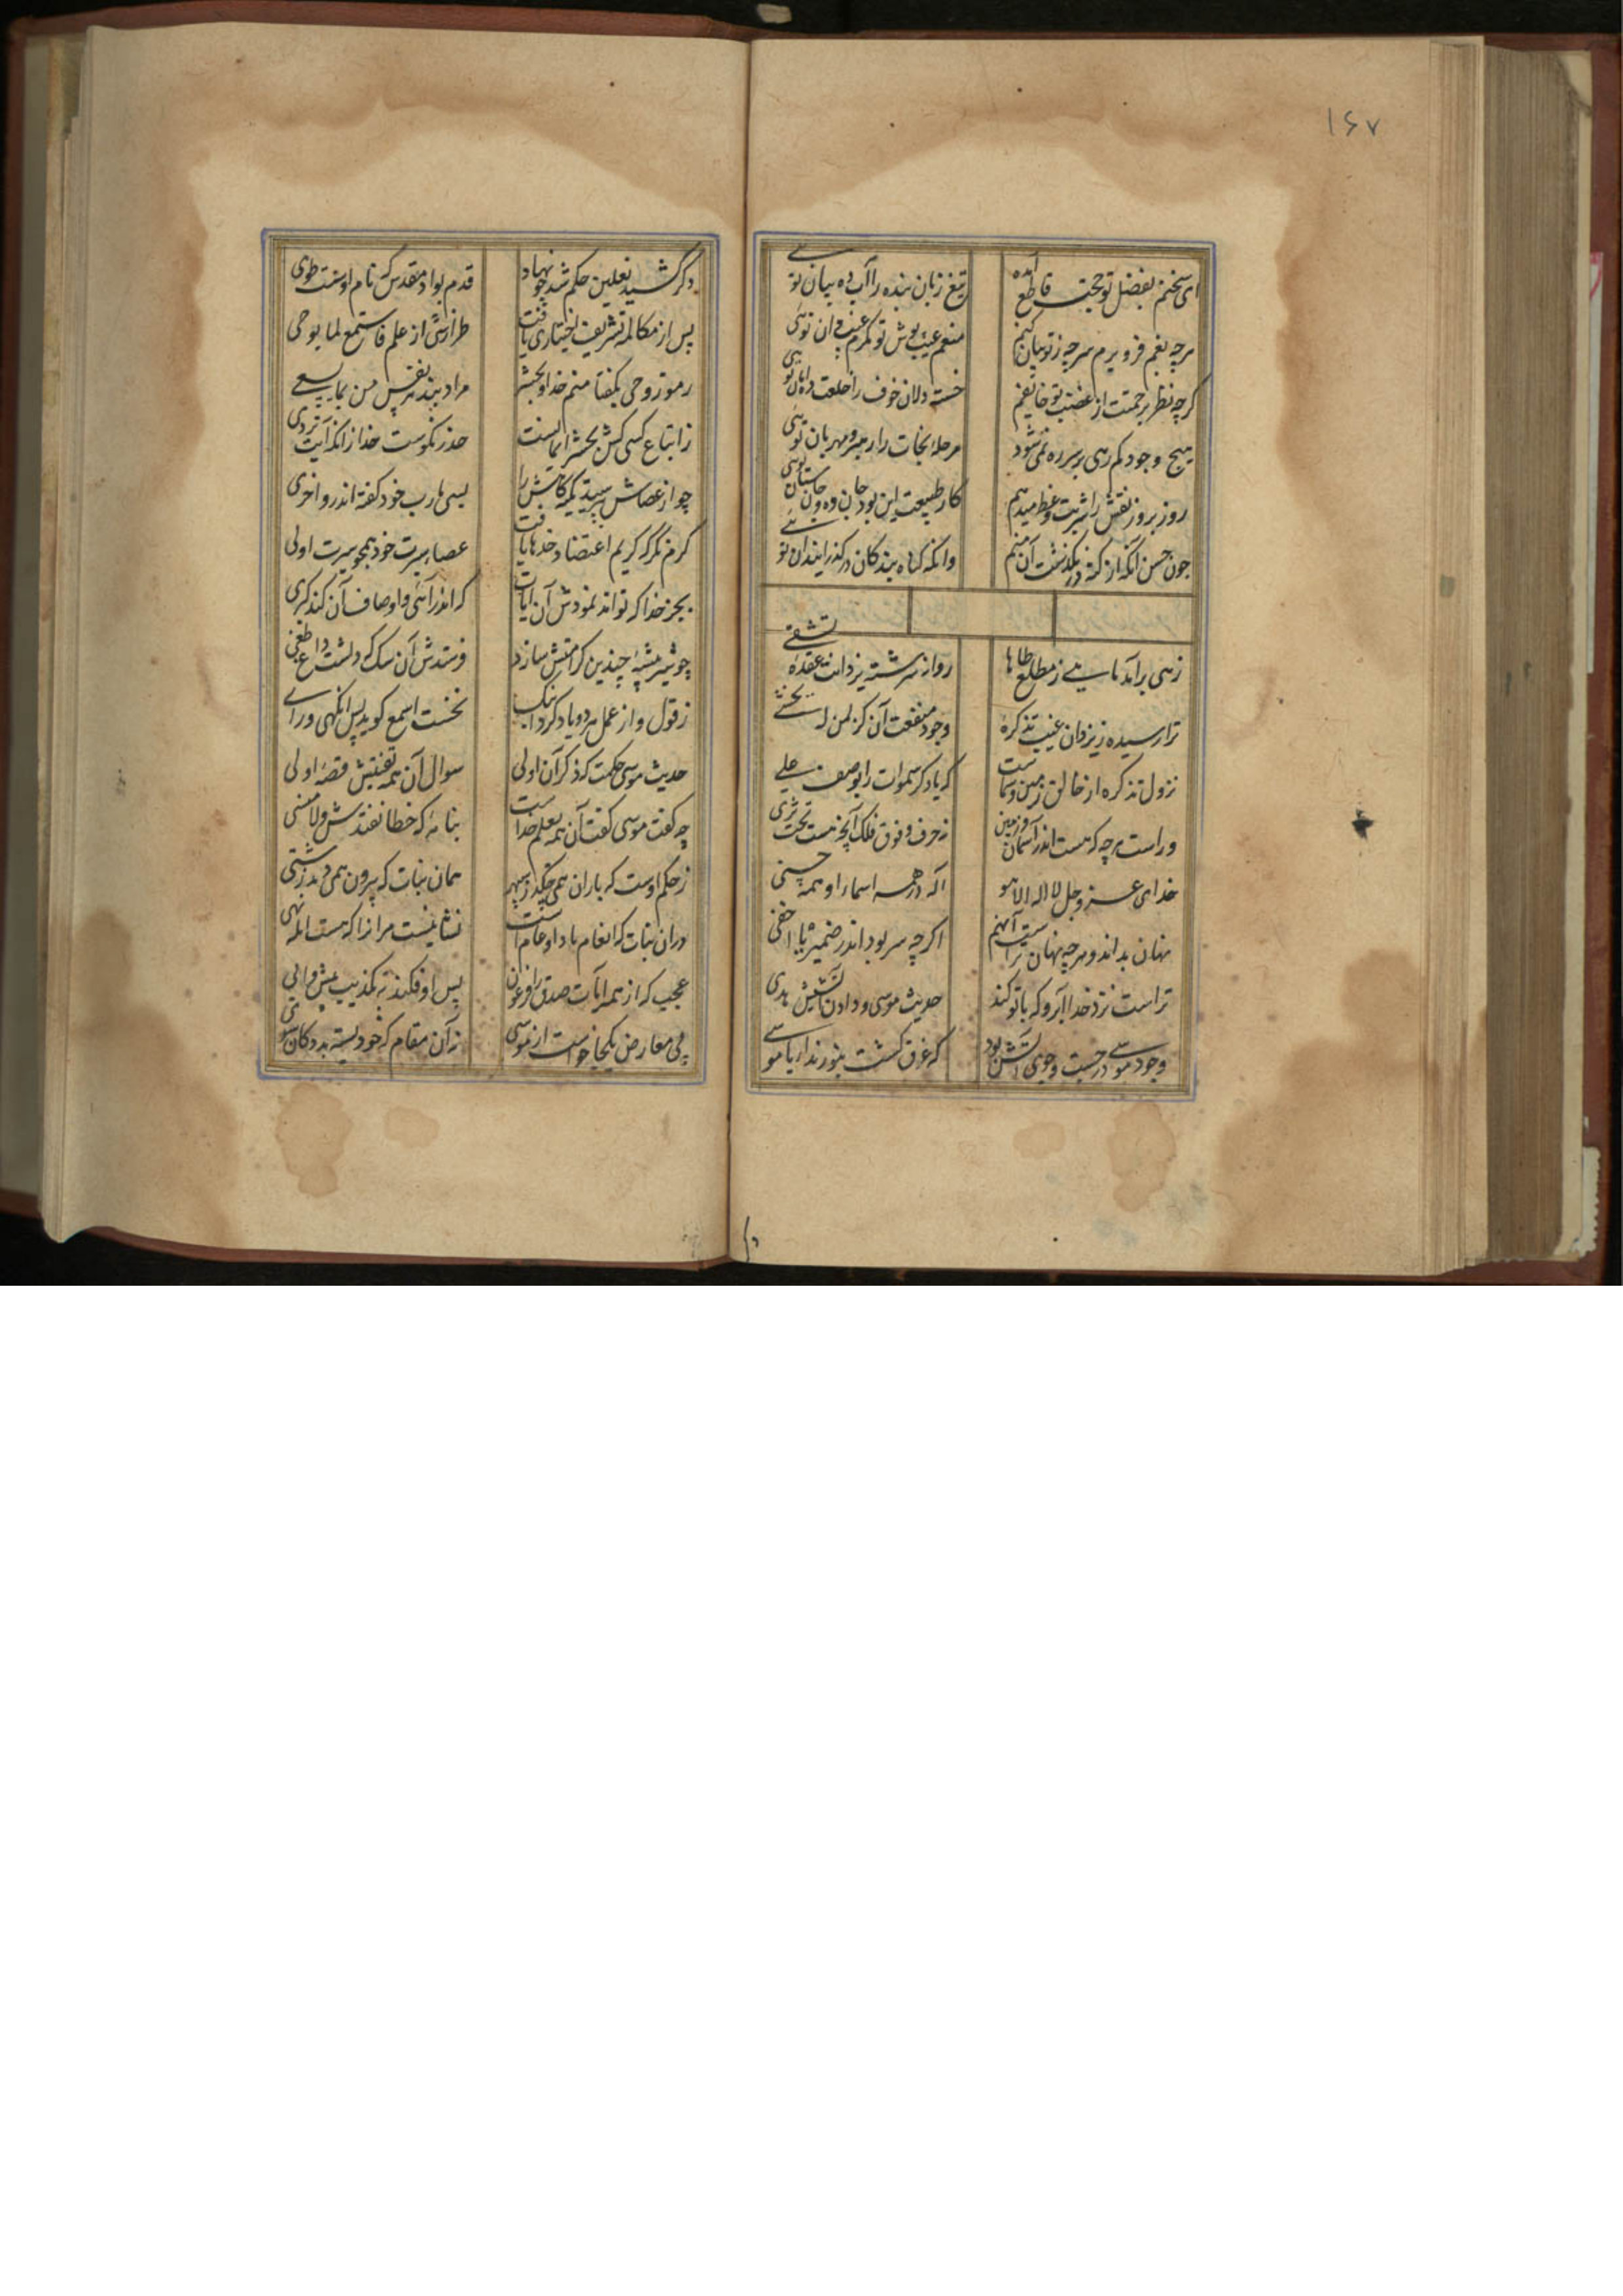 ۱۶۷
ای سخنم بفضل تو حجت قاطع آمده تیغ زبان بنده را آب ده بیان توئی
هرچه بغم فرو برم هرچه ز تو بیان کنم منعم عیب پوش تو مکرم غیب دان توئی
گرچه نظر برحمتت از غضب تو خایفم خسته دلان خوف را خلعت ده امان توئی
هیچ وجود کم رهی بر سر ره نمی شود مرحله نجات را رهبر و مهربان توئی
روز بروز نفس را شربت وعظ میدهم کار طبیعت این بود جان ده و جان ستان توئی
چون حسن آنکه از کنه در نگذشت آن منم وانکه گناه بندگان درگذراند آن توئی
زهی برآمد ماهیی ز مطلع طاها روانه سرشته یزدانت عقده تشقی
ترا رسیده ز یزدان غیب تذکره وجود منفعت آن کز لمن یخشی
نزول تذکره از خالق زمین و سماست که یاد کر سموات را بوصف علی
وراست هرچه که هست اندر آسمان و زمین ز حرف و فوق فلک آنچه هست تحت ثری
خدای عز و جل لا اله الا هو اله در همه اسماء او همه حسنی
نهان بداند و هرچه نهان تراست آنهم اگرچه سر بود اندر ضمیر یا اخفی
تراست نزد خدا آبرو که با تو کند حدیث موسی و دادن ز آتشش هدی
وجود موسی در جست و جوی آتش بود که غرق گشت بنور ندای یا موسی
دگر کشید نعلین حکم شد چو نهاد قدم بواد مقدس که نام اوست طوی
پس از مکالمه تشریف اختیاری یافت طراز آن از علم فاستمع لما یوحی
رموز وحی بگفتا منم خدا و بحشر مراد بیند هر نفس من بما یسعی
ز اتباع کسی کش بحشر ایمان نیست حذر نکوست خدا زانکه آیت تردی
چو از عصاش بپرسید تکیه گاهش را بسی مآرب خود گفته اندرو اخری
کرم نگر که کریم اعتضاد خدها یافت عصا بسرت خود همچو سیرت اولی
بجز خدا که تواند نمودش آن آیات که اندر آئی و اوصاف آن کند کبری
چو شیر بیشه چندین کرامتش سازد فرستدش آن سگ که داشت داغ طغی
ز قول و از عمل هر دو یاد کرد اینک نخست اسمع گوید پس انگهی و اری
حدیث موسی حکمت که ذکر آن اولی سوال آن همه تفتیش قصه اولی
چه گفت موسی گفت آن همه بعلم خداست بنامه که خطا نفتدش و لا ینسی
ز حکم اوست که باران همی چکد ز سپهر همان نبات که بیرون همی دمد ز شتی
در آن نبات که انعام یاد او عام است نشانیست مر آنرا که هست اهل نهی
عجب که از همه آیات صدق را فرعون پس او فکند به تکذیب پیش و ابی
پی معارضه یکجا خواست از موسی در آن مقام که خود بسته بد دکان سوی